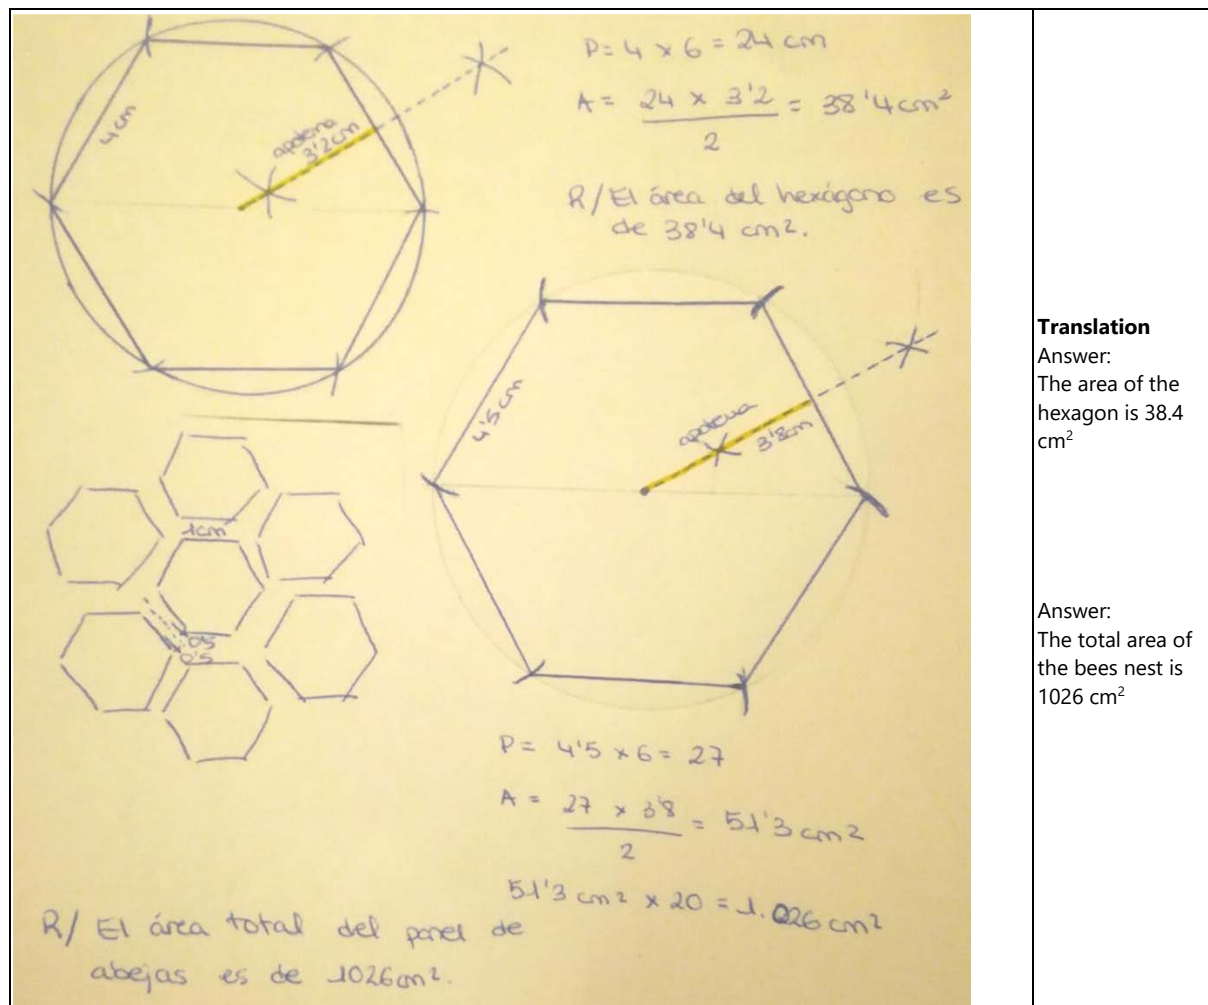 P= 4 x 6 = 24 cm
A = 24 x 3'2 = 38'4 cm²
2
4 cm
apotema
3'2 cm
R/ El área del hexágono es
de 38'4 cm².
4'5 cm
apotema
3'8cm
1cm
0'5
0'5
P= 4'5 x 6 = 27
A = 27 x 3'8 = 51'3 cm²
2
51'3 cm² x 20 = 1.026 cm²
R/ El área total del panel de
abejas es de 1026cm².
Translation
Answer:
The area of the
hexagon is 38.4
cm²
Answer:
The total area of
the bees nest is
1026 cm²